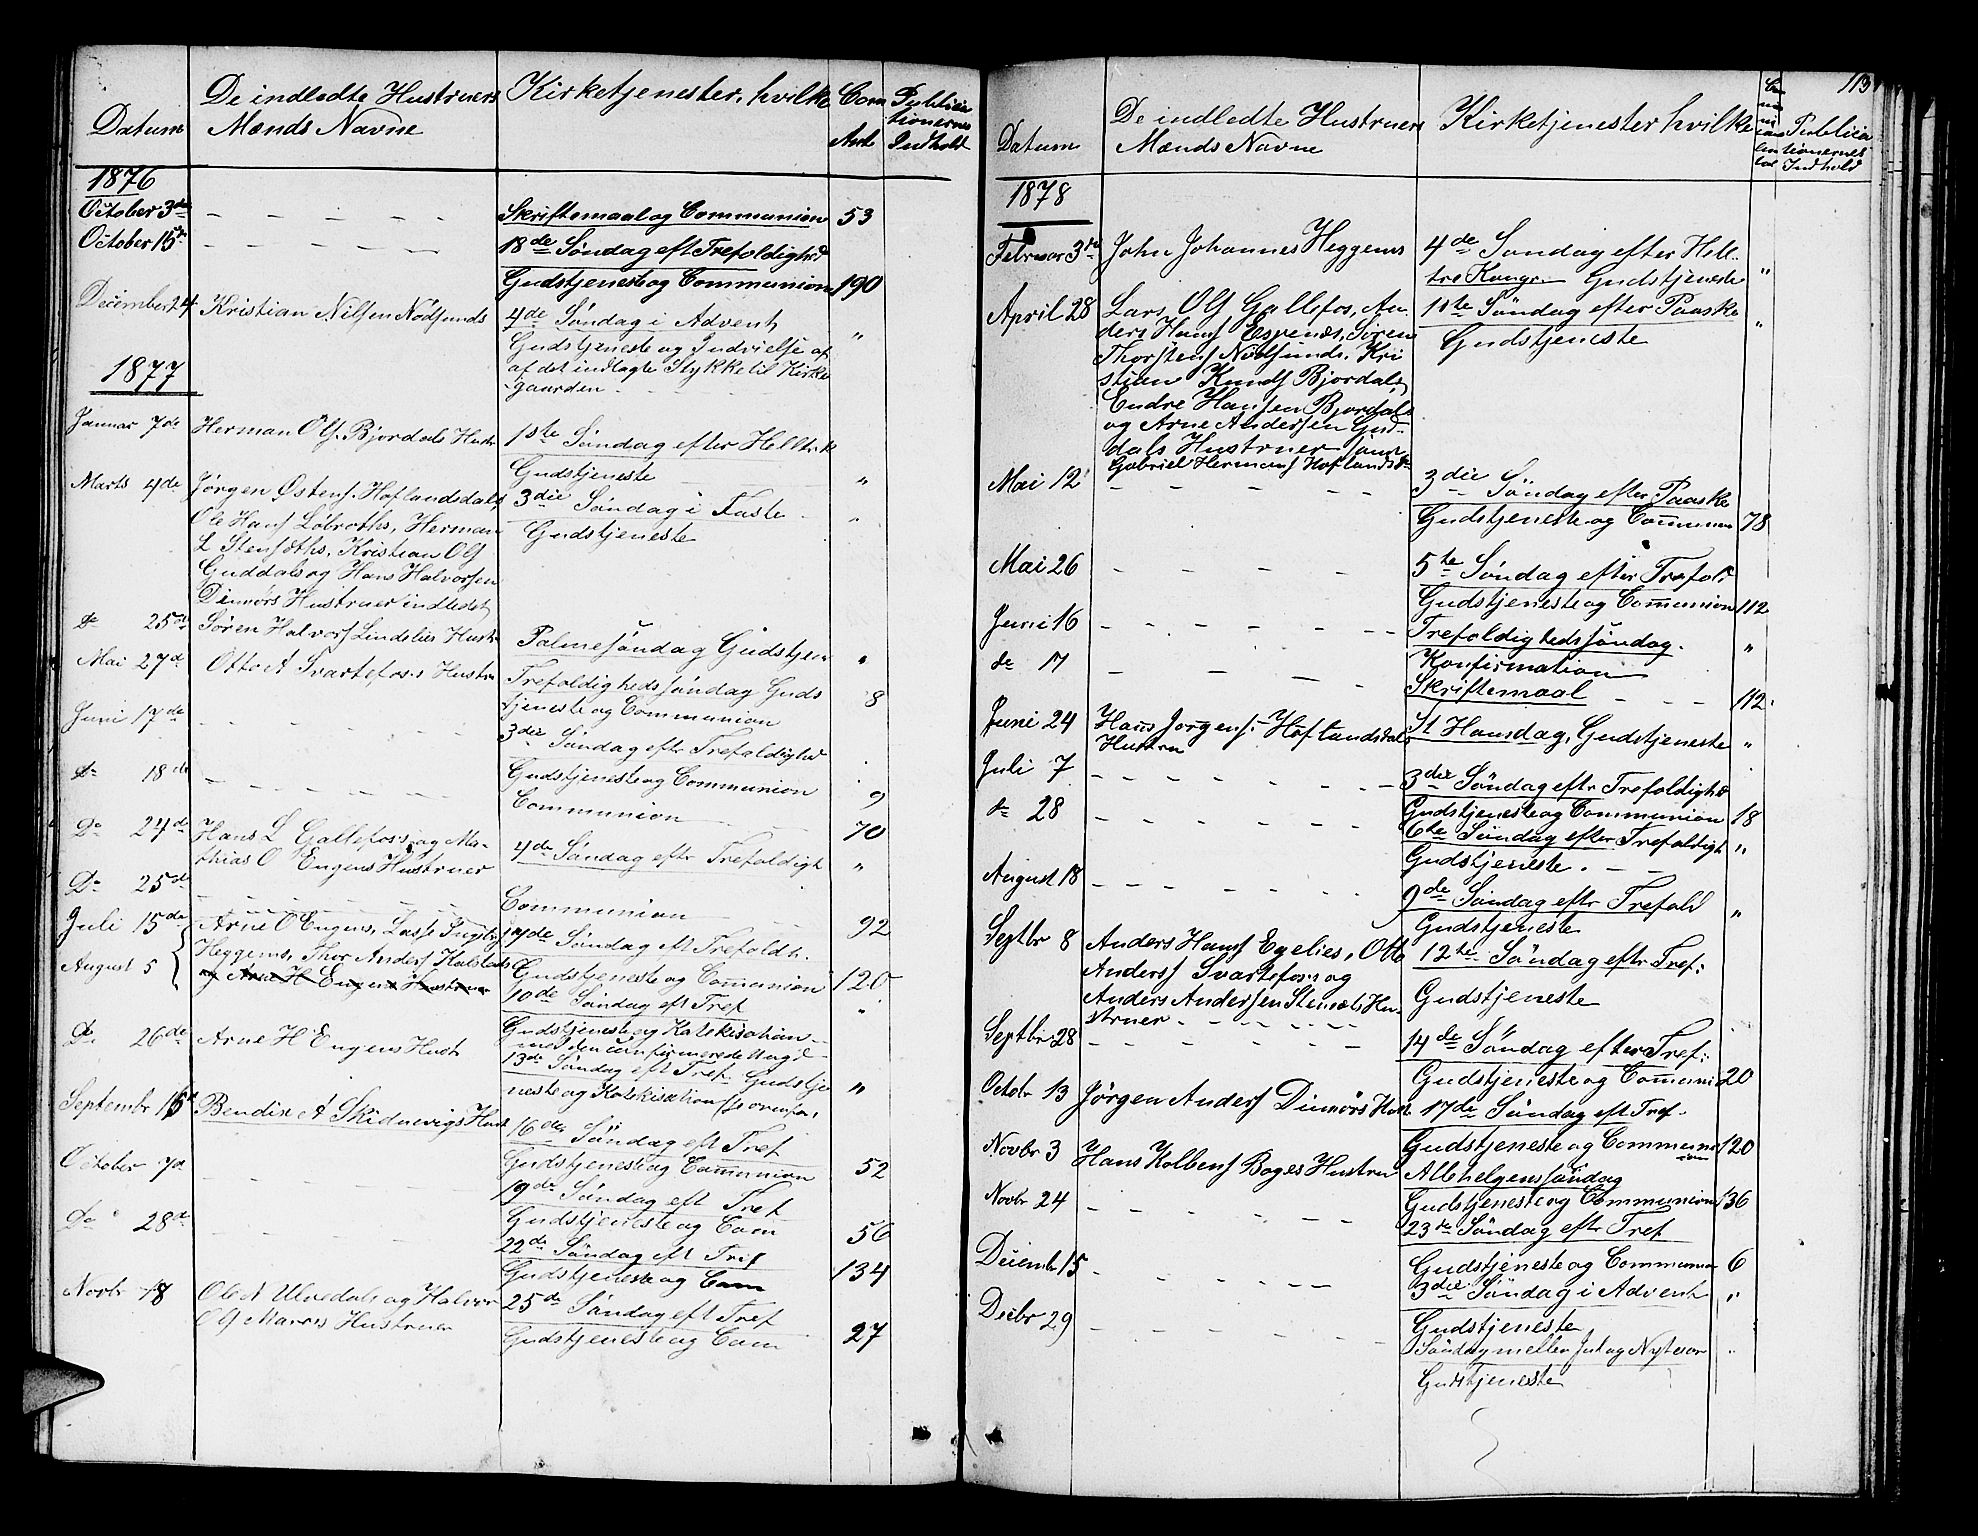 Datum
De indledte Hustruers
Mænds Navne
Kirketjenester, hvilke
Com
Ant
Publica
tionernes
Indhold
1876
October 3de
Skriftemaal og Communion 53
October 15de
18de Søndag eft Trefoldighed
Gudstjeneste og Communion 190
December 24 Kristian Nilsen Nødsunds
4de Søndag i Advent
Gudstjeneste og Indvielse af "
af det indlagte Stykke til Kirke
gaarden
1877
Januar 7de Herman Ols. Bjordals Hustr
1ste Søndag efter Helltrek
Gudstjeneste "
Marts 4de Jørgen Østens. Hoflandsdals,
3die Søndag i Faste "
Ole Hans Løbroths, Herman
Gudstjeneste
L Stensøths, Kristian Ols
Guddals og Hans Halvorsen
Dinnørs Hustruer indledet
do 25de Søren Halvors Lindelies Hustr
Palmesøndag Gudstjen "
Mai 27de Otto A Svartefoss Hustru
Trefoldighedssøndag Guds 8
tjeneste og Communion
Juni 17de
3die Søndag eftr Trefoldighed
Gudstjeneste og Communion 9
do 18de
Communion 70
Do 24de Hans L Gallefoss og Ma-
thias O Engens Hustruer
4de Søndag eftr Trefoldigh "
Do 25de
Communion 92
Juli 15de Arne O Engens, Lasse
7de Søndag eft Trefoldh.
Heggens, Thor Anders Kalstads
Gudstjeneste og Communion 120
August 5 og Arne H Engens Hustruer
10de Søndag eft Tref "
Gudstjeneste og Katekisation
med den confirmerede Ungd
Do 26de Arne H Engens Hustr
13de Søndag eft Tref Gudstje "
neste og Katekisation
Septembr 16 Bendix A Skidnevigs Hustr
16de Søndag eft Tref
Gudstjeneste og Communion 52
October 7d
19de Søndag eft Tref
Gudstjeneste og Com 56
Do 28de
22de Søndag eft Tref
Gudstjeneste og Com 134
Novbr 18 Ole N Ulvedals og Halvor
25de Søndag eft Tref
Ols Hustruer
Gudstjeneste og Com 27
113
Datum
De indledte Hustruers
Mænds Navne
Kirketjenester hvilke
Publica
tionernes
Indhold
1878
Februar 3de John Johannes Heggens
4de Søndag efter Hell.
tre Kongr. Gudstjeneste "
April 28 Lars Ols Gallefos, An-
1ste Søndag efter Paaske "
ders Hans Espenæs, Søren
Gudstjeneste
Thorstens Nødsunds, Kri
stian Knuds Bjordals,
Endre Hansen Bjordals
og Arne Andersen Gud-
dals Hustruer samt
Gabriel Hermans Hoflandsd
Mai 12
3die Søndag efter Paaske
Gudstjeneste og Communion 78
Mai 26
5te Søndag efter Trefold
Gudstjeneste og Communion 112
Juni 16
Trefoldighedssøndag. "
Konfirmation
do 17
Skriftemaal 112.
Juni 24 Hans Jørgens. Hoflandsdals
Hustru
St Hansdag, Gudstjeneste "
Juli 7
3die Søndag eftr Trefoldighed
Gudstjeneste og Communion 18
do 28
6te Søndag efter Trefoldigh "
Gudstjeneste.
August 18
9de Søndag eftr Trefold "
Gudstjeneste
Septbr 8 Anders Hans Egelies, Otto
12te Søndag eftr Tref:
Anders Svartefoss og
Gudstjeneste
Anders Andersen Stensæts Hu-
struer
Septbr 28
14de Søndag efter Tref:
Gudstjeneste og Communi 20
Octobr 13 Jørgen Anders Dinnørs Hustr.
17de Søndag eft Tref.
Gudstjeneste og Commun 120
ion
Novbr 3 Hans Kolbens Boges Hustru
Allehelgenssøndag
Gudstjeneste og Communion 136
Novbr 24
23de Søndag eftr Tref
Gudstjeneste og Communion 6
Decembr 15
3die Søndag i Advent "
Gudstjeneste
Decbr 29
Søndag mellem Jul og Nytaar "
Gudstjeneste